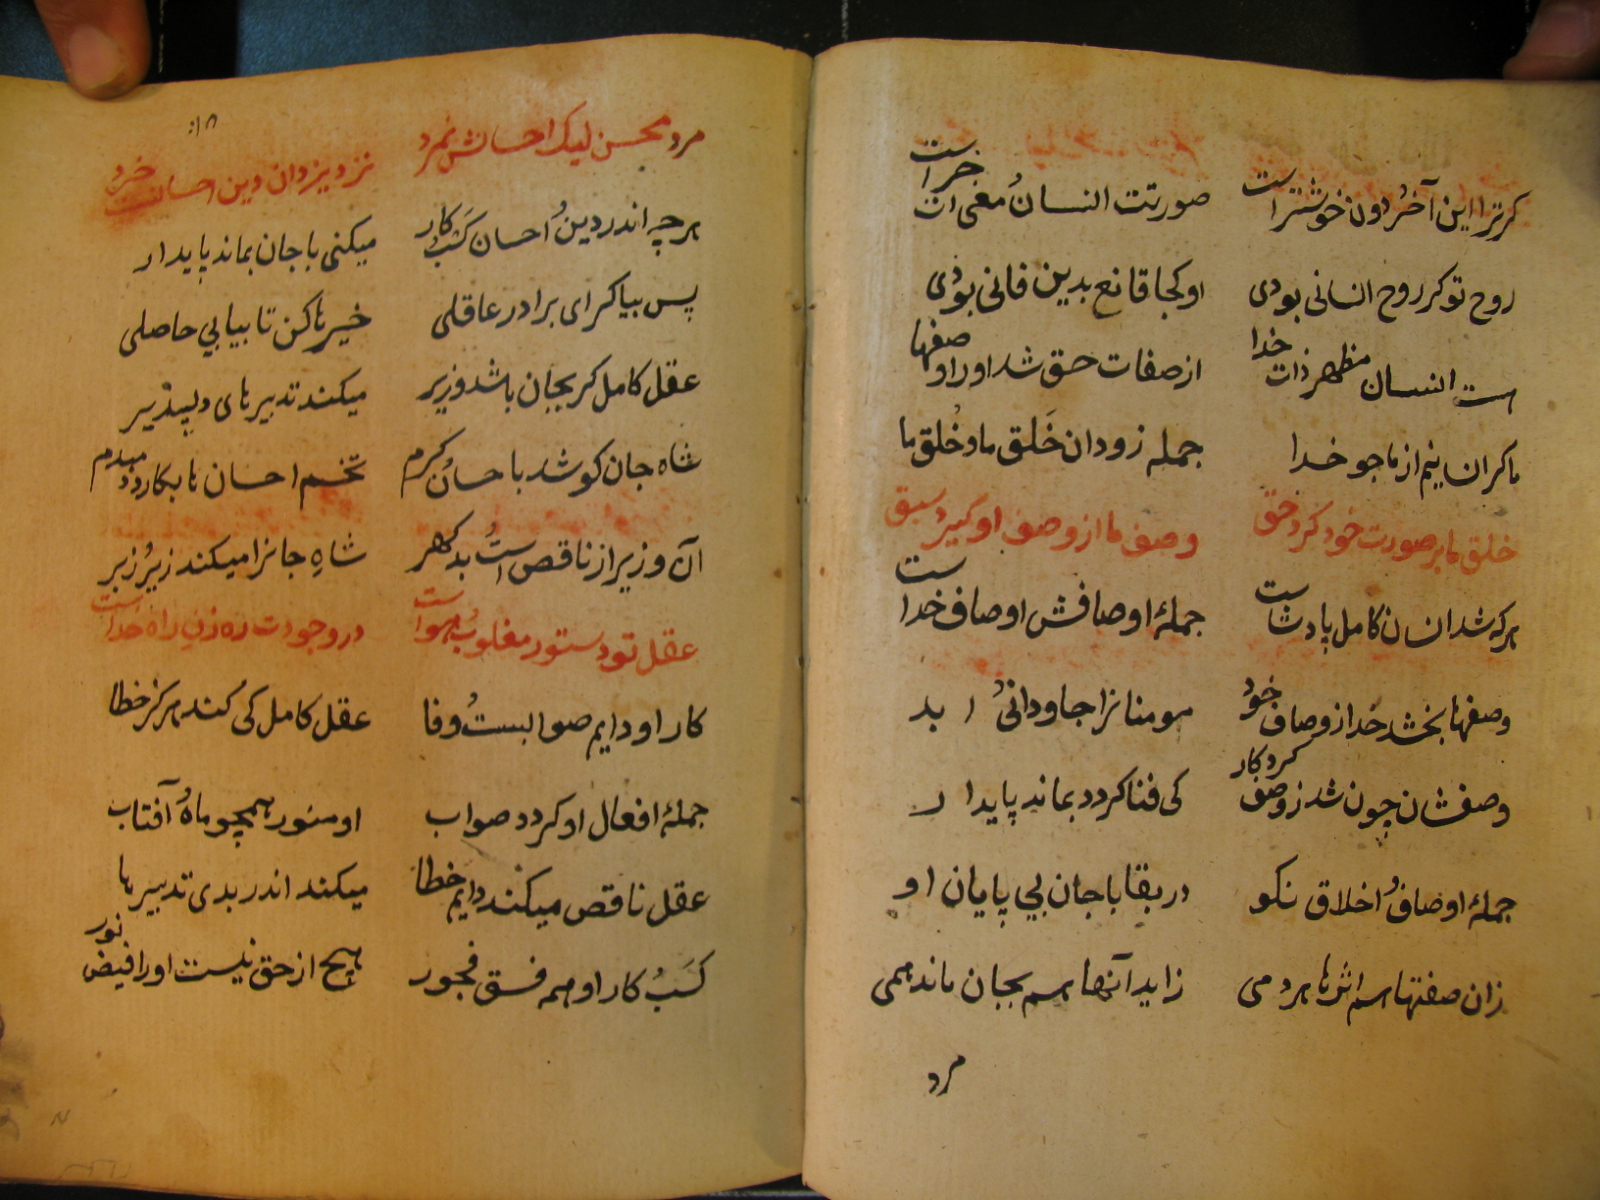 کر ترا این آخر دون خوشتراست
صورتت انسان و معنی ات خراست
روح تو کر روح انسانی بودی
او کجا قانع بدین فانی بودی
هست انسان مظهر ذات خدا
از صفات حق شد اورا وصفها
جمله زودان خَلق ما و خُلق ما
خلق ما بر صورت خود کرد حق
وصف ما از وصف او کیرد سبق
هرکه شد انسان کامل پادشاست
جملهٔ اوصافش اوصاف خداست
وصفها بخشد خدا زوصاف خود
مومنانرا جاودانی و ابد
وصفشان چون شد زوصف کردکار
کی فنا کردد بماند پایدار
جملهٔ اوصاف و اخلاق نکو
در بقا با جان بی پایان او
زان صفتها هم اثرها هر دمی
زاید آنها هم بجان ماند همی
مرد
۱۸
مرد محسن لیک احسانش نمرد
نزد یزدان دین احسان نیست خرد
هرچه اندر دین و احسان کَسب و کار
میکنی با جان بماند پایدار
پس بیا کر ای برادر عاقلی
خیرها کن تا بیابی حاصلی
عقل کامل کر بجان باشد وزیر
میکند تدبیرهای دلپذیر
شاه جان کوشد باحسان و کرم
تخم احسانها بکارد دمبدم
آن وزیر ار ناقص است و بدکهر
شاهِ جانرا میکند زیر و زبر
عقل تو دستور مغلوب هواست
در وجودت ره زنِ راه خداست
کار او دایم صوابست و وفا
عقل کامل کی کند هرکز خطا
جملهٔ افعال او کردد صواب
او منور همچو ماه و آفتاب
عقل ناقص میکند دایم خطا
میکند اندر بدی تدبیرها
کَسب و کار او همه فسق و فجور
هیچ از حق نیست اورا فیض نور